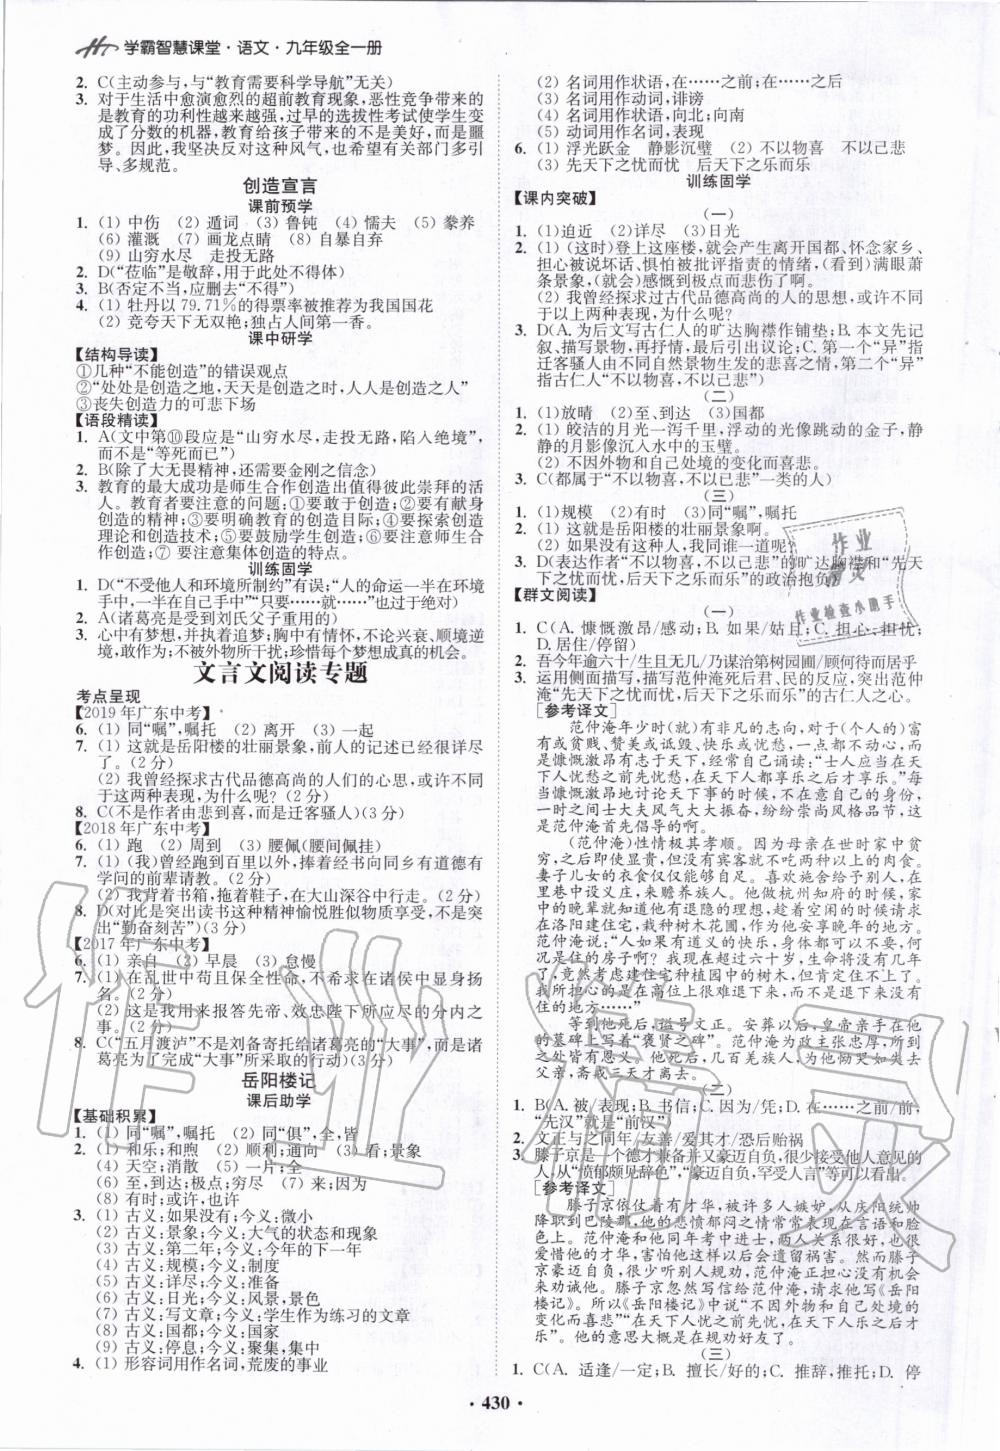 学霸智慧课堂·语文·九年级全一册
2. C(主动参与,与“教育需要科学导航”无关)
3. 对于生活中愈演愈烈的超前教育现象,恶性竞争带来的
是教育的功利性越来越强,过早的选拔性考试使学生变
成了分数的机器,教育给孩子带来的不是美好,而是噩
梦。因此,我坚决反对这种风气,也希望有关部门多引
导、多规范。
创造宣言
课前预学
1. (1) 中伤 (2) 遁词 (3) 鲁钝 (4) 懦夫 (5) 豢养
(6) 灌溉 (7) 画龙点睛 (8) 自暴自弃
(9) 山穷水尽 走投无路
2. D(“莅临”是敬辞,用于此处不得体)
3. B(否定不当,应删去“不得”)
4. (1) 牡丹以79.71%的得票率被推荐为我国国花
(2) 竞夸天下无双艳;独占人间第一香。
课中研学
【结构导读】
①几种“不能创造”的错误观点
②“处处是创造之地,天天是创造之时,人人是创造之人”
③丧失创造力的可悲下场
【语段精读】
1. A(文中第⑩段应是“山穷水尽,走投无路,陷入绝境”,
而不是“等死而已”)
2. B(除了大无畏精神,还需要金刚之信念)
3. 教育的最大成功是师生合作创造出值得彼此崇拜的活
人。教育者要注意的问题:①要敢于创造;②要有献身
创造的精神;③要明确教育的创造目标;④要探索创造
理论和创造技术;⑤要鼓励学生创造;⑥要注意师生合
作创造;⑦ 要注意集体创造的特点。
训练固学
1. D(“不受他人和环境所制约”有误;“人的命运一半在环境
手中,一半在自己手中”“只要……就……”也过于绝对)
2. A(诸葛亮是受到刘氏父子重用的)
3. 心中有梦想,并执着追梦;胸中有情怀,不论兴衰、顺境逆
境,敢作为;不被外物所干扰;珍惜每个梦想成真的机会。
文言文阅读专题
考点呈现
【2019年广东中考】
6. (1) 同“嘱”,嘱托 (2) 离开 (3) 一起
7. (1) 这就是岳阳楼的壮丽景象,前人的记述已经很详尽
了。(2分)
(2) 我曾经探求古代品德高尚的人们的心思,或许不同
于这两种表现,为什么呢?(2分)
8. C(不是作者由悲到喜,而是迁客骚人)(3分)
【2018年广东中考】
6. (1) 跑 (2) 周到 (3) 腰佩(腰间佩挂)
7. (1) (我)曾经跑到百里以外,捧着经书向同乡有道德有
学问的前辈请教。(2分)
(2) 我背着书箱,拖着鞋子,在大山深谷中行走。(2分)
8. D(对比是突出读书这种精神愉悦胜似物质享受,不是突
出“勤奋刻苦”)(3分)
【2017年广东中考】
6. (1) 亲自 (2) 早晨 (3) 怠慢
7. (1) 在乱世中苟且保全性命,不希求在诸侯中显身扬
名。(2分)
(2) 这是我用来报答先帝、效忠陛下所应尽的分内之
事。(2分)
8. C(“五月渡泸”不是刘备寄托给诸葛亮的“大事”,而是诸
葛亮为了完成“大事”所采取的行动)(3分)
岳阳楼记
课后助学
【基础积累】
1. (1) 同“嘱”,嘱托 (2) 同“俱”,全;皆
2. (1) 和乐;和煦 (2) 顺利;通向 (3) 看;景象
(4) 天空;消散 (5) 一片;全
(6) 至,到达;极点;穷尽 (7) 长;因为
(8) 有时;或许,也许
3. (1) 古义:如果没有;今义:微小
(2) 古义:景象;今义:大气的状态和现象
(3) 古义:第二年;今义:今年的次年
(4) 古义:规模;今义:制度
(5) 古义:详尽;今义:准备
(6) 古义:日光;今义:风景,景色
(7) 古义:写文章;今义:学生作为练习的文章
(8) 古义:国都;今义:国家
(9) 古义:停息;今义:聚集,集中
4. (1) 形容词用作名词,荒废的事业
(2) 名词用作状语,在……之前;在……之后
(3) 名词用作动词,诽谤
(4) 名词用作状语,向北;向南
(5) 动词用作名词,表现
6. (1) 浮光跃金 静影沉璧 (2) 不以物喜 不以己悲
(3) 先天下之忧而忧 后天下之乐而乐
训练固学
【课内突破】
(一)
1. (1)迫近 (2)详尽 (3)日光
2. (1) (这时)登上这座楼,就会产生离开国都、怀念家乡、
担心被说坏话、惧怕被批评指责的情绪,(看到)满眼萧
条景象,(就会)感慨到极点而悲伤了啊。
(2) 我曾经探求过古代品德高尚的人的思想,或许不同
于以上两种表现,为什么呢?
3. D(A. 为后文写古仁人的旷达胸襟作铺垫;B. 本文先记
叙、描写景物,再抒情,最后引出议论;C. 第一个“异”指
迁客骚人因为自然景物生发的悲喜之情,第二个“异”
指古仁人“不以物喜,不以己悲”)
(二)
1. (1)放晴 (2)至、到达 (3)国都
2. (1) 皎洁的月光一泻千里,浮动的光像跳动的金子,静
静的月影像沉入水中的玉璧。
(2) 不因外物和自己处境的变化而喜悲。
3. C(都属于“不以物喜,不以己悲”一类的人)
(三)
1. (1)规模 (2)有时 (3)同“嘱”,嘱托
2. (1) 这就是岳阳楼的壮丽景象啊。
(2) 如果没有这种人,我同谁一道呢?
3. D(表达作者“不以物喜,不以己悲”的旷达胸襟和“先天
下之忧而忧,后天下之乐而乐”的政治抱负)
【群文阅读】
(一)
1. C(A. 慷慨激昂/感动;B. 如果/如果;C. 担心;担忧;
D. 居住/停留)
2. 吾今年逾六十/生且无几/乃谋治第树园圃/顾何待而居乎
3. 运用侧面描写,描写范仲淹死后君、民的反应,突出范仲
淹“先天下之忧而忧,后天下之乐而乐”的古仁人之心。
[参考译文]
范仲淹年少时(就)有非凡的志向,对于(个人的)富
有或贫贱、赞美或诋毁、快乐或忧愁,一点都不动心,而
是慷慨激昂有志于天下,经常自己诵读:“士人应当在天
下人忧愁之前先忧愁,在天下人享乐之后才享乐。”每当
感慨激昂地讨论天下事的时候,不在意自己的身份,
一时之间士大夫风气大大振奋,纷纷崇尚风格品节,这
是范仲淹首先倡导的啊。
(范仲淹)性情极其孝顺。因为母亲在世时家中贫
穷,之后即使显贵,但没有宾客时吃不两种以上的肉食。
妻子儿女的衣食仅仅能够自足。喜欢施舍给予别人,在
里巷中设置义庄,来赡养族人。他做杭州知府的时候,家
中的晚辈就知道他有退隐的理想,趁着空闲的时候请求
在洛阳建住宅,种树木花圃,作为他安享晚年的地方。
范仲淹说:“人如果有道义的快乐,身体都可以不要的,何
况是住的房子啊?我现在超过六十岁,生命没有多久
了,竟然考虑建住宅种园圃中的树木,但肯定住不上了。
我所担心的是在高位上很难退下来,而不担心退下来没有
住的地方……”
等到他死后,谥号文正。安葬以后,皇帝亲手在他
的墓碑上写着“褒贤之碑”。范仲淹为政主张忠厚,所到
之处多有恩惠。他死后,几百羌族人,为他恸哭如失去
父亲。
(二)
1. B(A. 被/表现;B. 书信/书写;C. 因为/凭;D. 在……之前/前,
“先汉”就是“前汉”)
2. 文正与之同年/友善/爱其才/恐后贻祸
3. 滕子京是一个德才兼备并又豪迈自负,很少接受他人意见的
人,从“愤郁颇见辞色”,“豪迈自负,罕受人言”等可以看出。
[参考译文]
滕子京依仗着有才华,被许多人嫉妒,从庆阳统帅
降职到巴陵郡,他的悲愤郁闷之情常常表现在言语和脸
色上。范仲淹和他同年考中进士,两人关系很好,也
很爱惜他的才华,害怕他这样会遭遇祸害。然而滕子
京豪迈自负,很少听别人规劝,范仲淹正担心没有机会
来劝诫他。滕子京忽然写信给范仲淹,请求他写《岳阳
楼记》。所以《岳阳楼记》中说“不因外物和自己处境的
变化而喜悲”“在天下人忧愁之前先忧愁,在天下人享乐
之后才享乐”。他的意思大概是在规劝好友了。
(三)
1. C(A. 适逢/一定;B. 擅长/好的;C. 推辞,推托;D. 停
· 430 ·
作业精灵
作业检查小助手